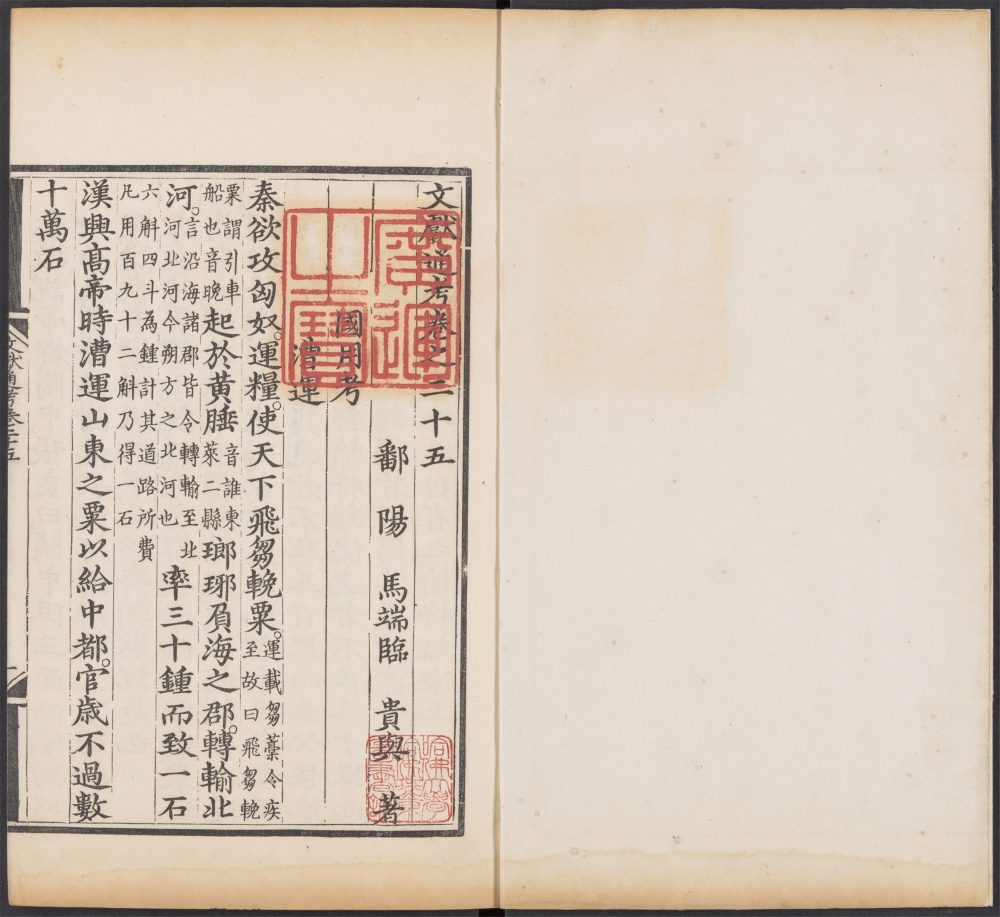 文獻通考卷之二十五
鄱陽 馬端臨 貴與 著
國用考
漕運
秦欲攻匈奴。運糧。使天下飛芻輓粟。運載芻藁令疾至故曰飛芻輓
粟謂引車船也音晚起於黃腄音誰東萊二縣瑯琊負海之郡。轉輸北
河。言沿海諸郡皆令轉輸至北河北河今朔方之北河也率三十鍾而致一石
六斛四斗為鍾計其道路所費凡用百九十二斛乃得一石
漢興高帝時漕運山東之粟以給中都。官歲不過數
十萬石
文献通考卷二十五
廣運之寶